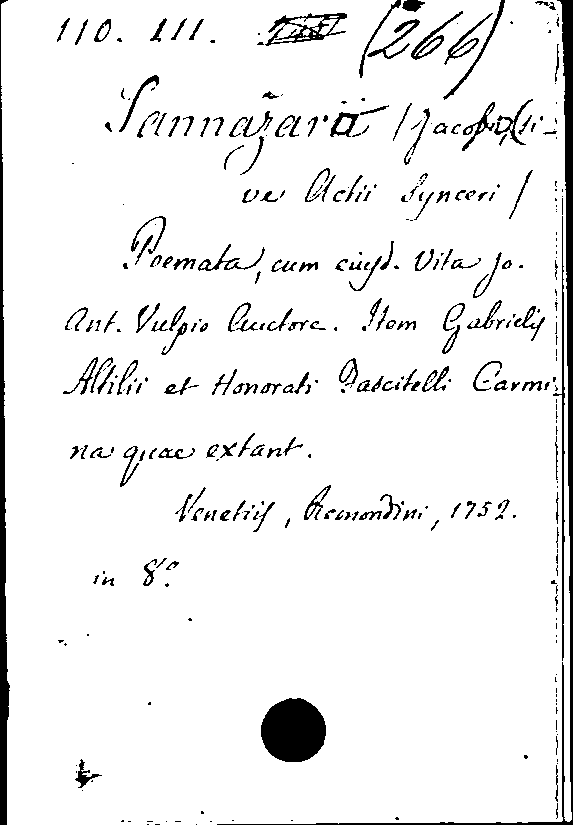 110. 111. (266)
Sannazarii / Jacobi, (si-
ve Actii Synceri /
Poemata, cum eiusd. Vita Jo.
Ant. Vulpio Auctore. Item Gabrielis
Altilii et Honorati Fascitelli Carmi-
na quae extant.
Venetiis, Remondini, 1752.
in 8.º